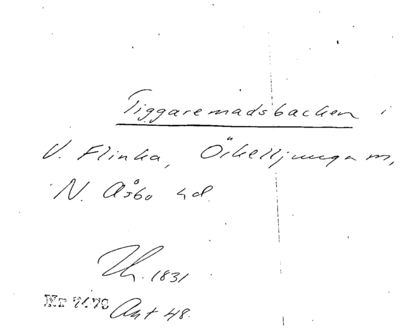 Tiggaremadsbacken i
V. Flinka, Örkelljunga m,
N. Åsbo hd.
1831
Ant 48.